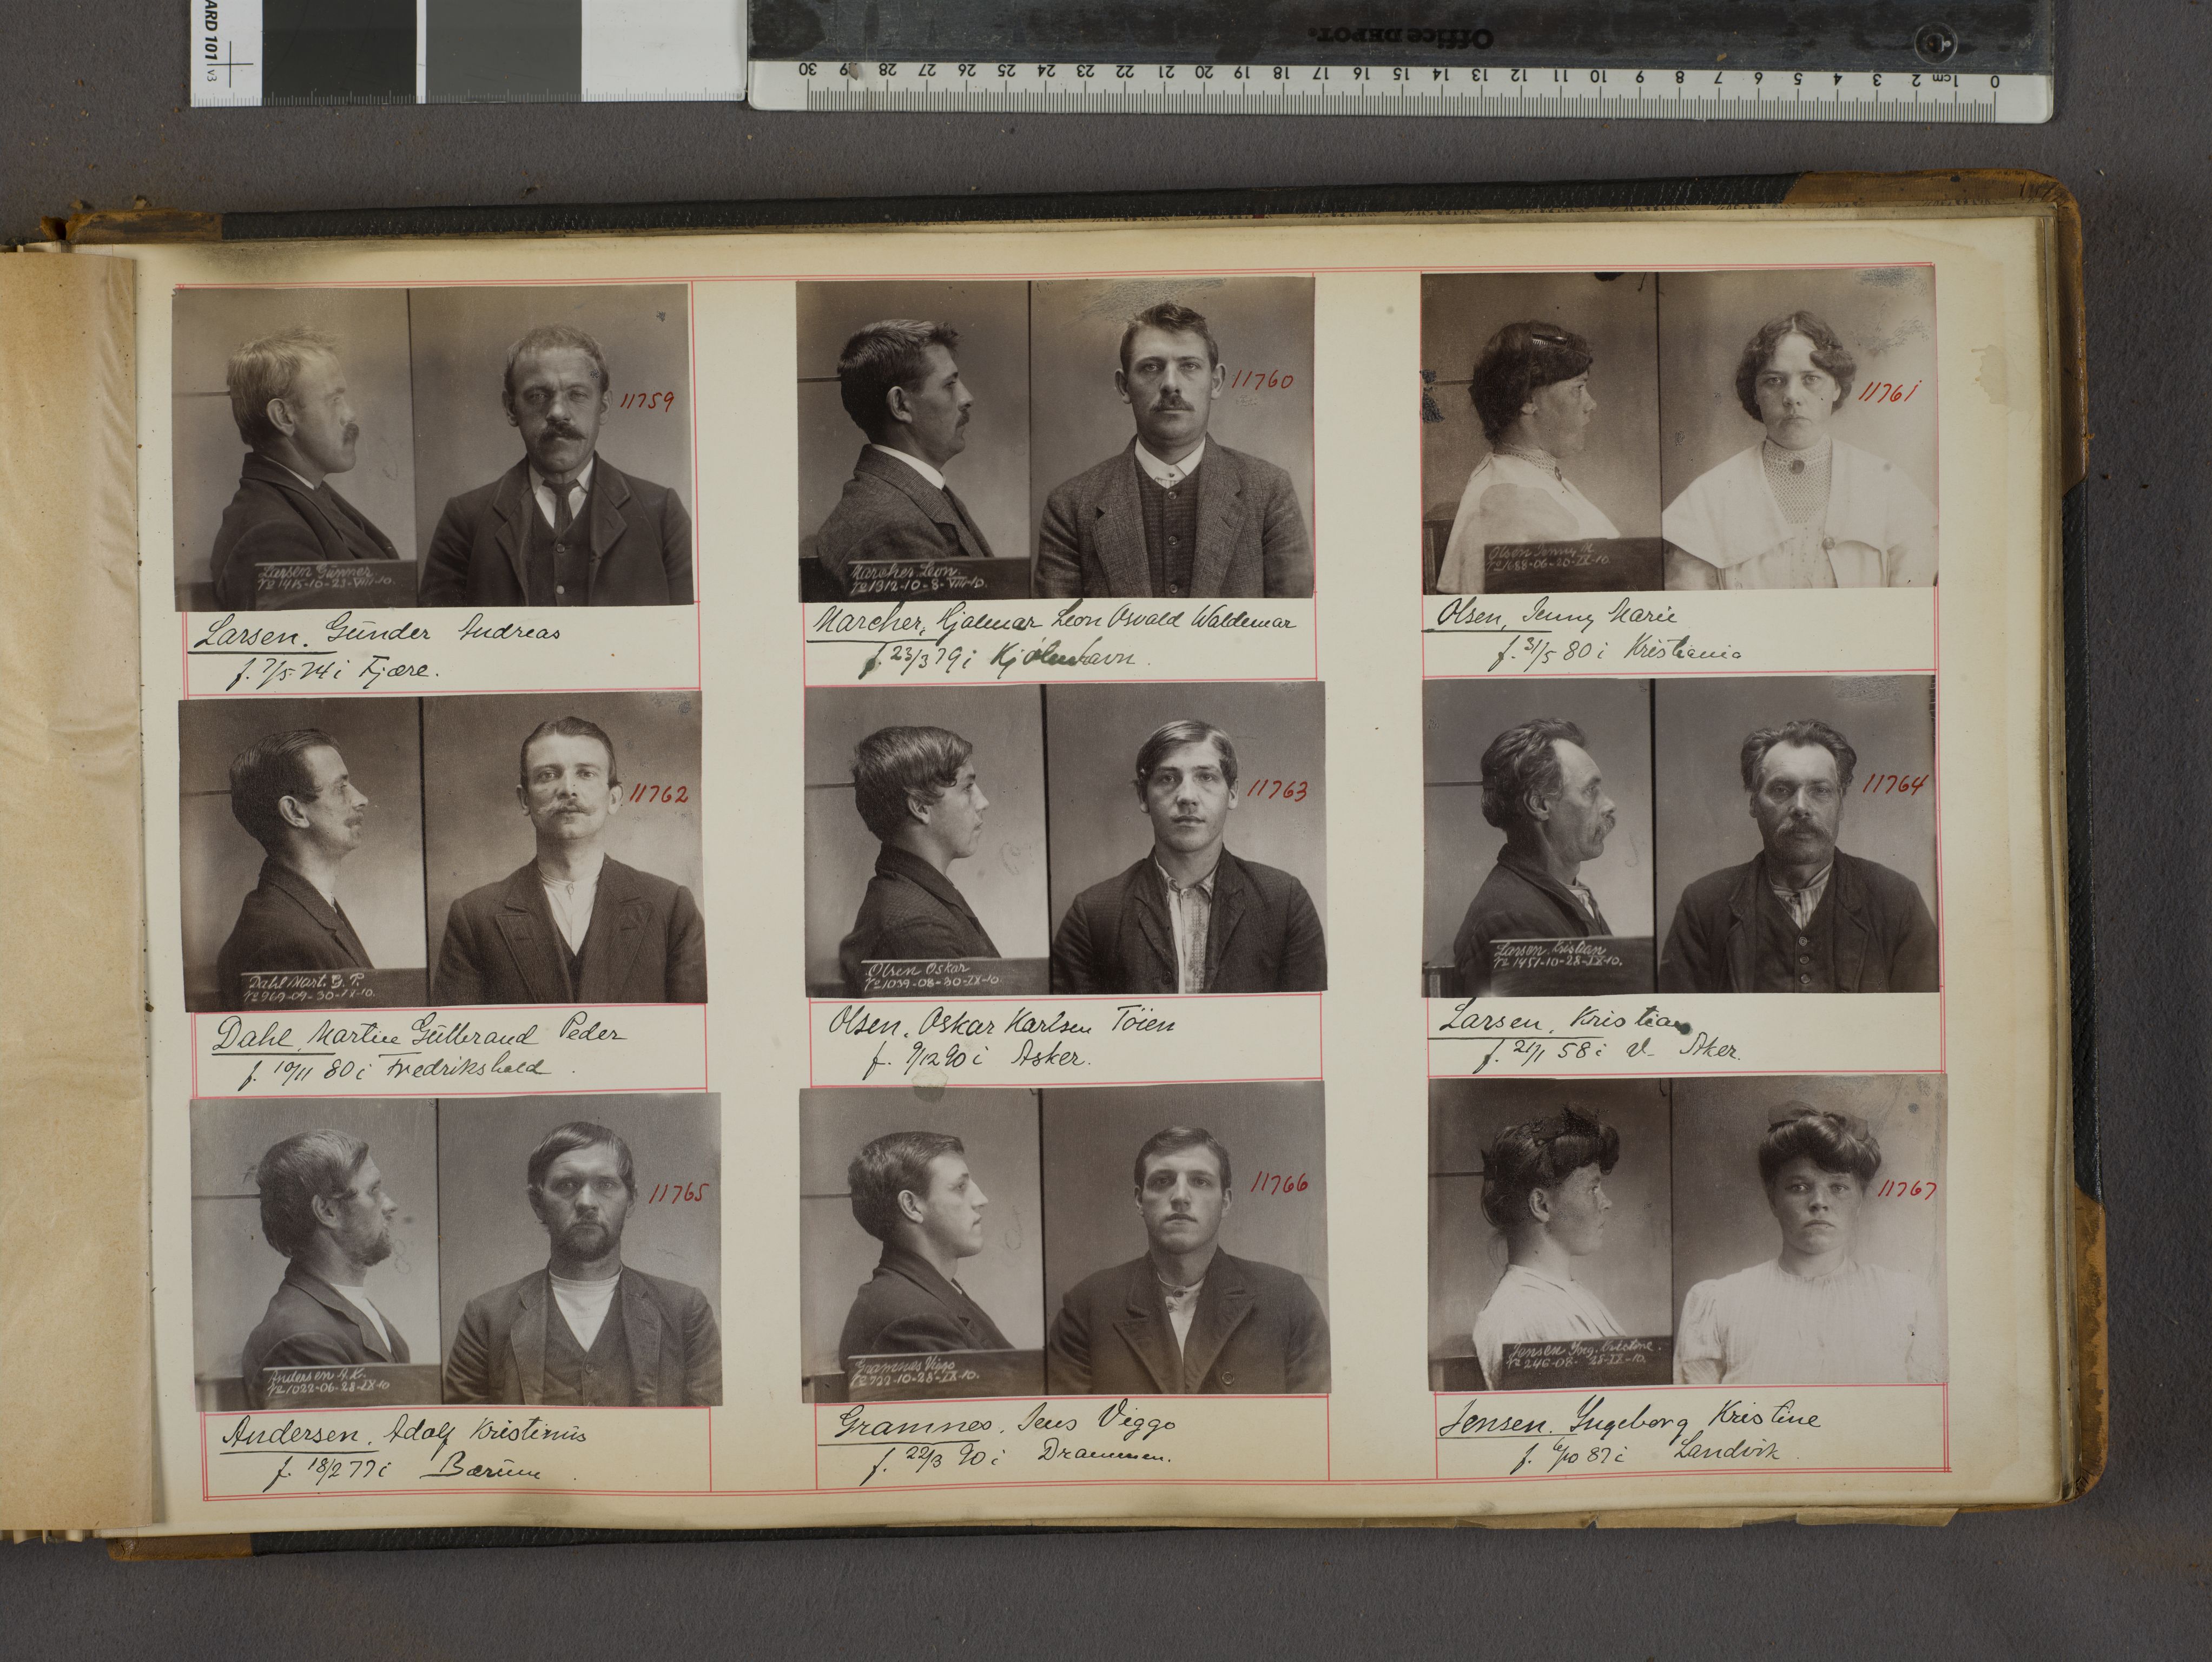 ARD 101 v3
Office DEPOT.
0 1cm 2 3 4 5 6 7 8 9 10 11 12 13 14 15 16 17 18 19 20 21 22 23 24 25 26 27 28 29 30
11759
Larsen Gunner
No 1415-10-23-VIII-10.
Larsen. Günder Andreas
f. 7/5-74 i Fjære.
11760
Marcher Leon
No 1312-10-8-VIII-10.
Marcher, Hjalmar Leon Osvald Waldemar
f. 23/3 79 i Kjöbenhavn.
11761
Olsen Jenny M
No 1688-06-20-IX-10.
Olsen, Jenny Marie
f. 31/5 80 i Kristiania
11762
Dahl Mart. G. P.
No 969-09-30-IX-10.
Dahl, Martin Gülbrand Peder
f. 10/11 80 i Fredrikshald.
11763
Olsen Oskar
No 1039-08-30-IX-10.
Olsen, Oskar Karlsen Töien
f. 9/12 90 i Asker.
11764
Larsen, Kristian
No 1451-10-28-IX-10.
Larsen, Kristian
f. 21/1 58 i Aker.
11765
Andersen A.K.
No 1022-06-28-IX-10
Andersen, Adolf Kristinüs
f. 18/2 77 i Bærüm.
11766
Gramnæs Viggo
No 722-10-28-IX-10.
Gramnes, Jens Viggo
f. 22/3 90 i Drammen.
11767
Jensen Ing. Kristine.
No 246-08- 28-IX-10.
Jensen. Yngeborg Kristine
f. 6/10 87 i Landvik.